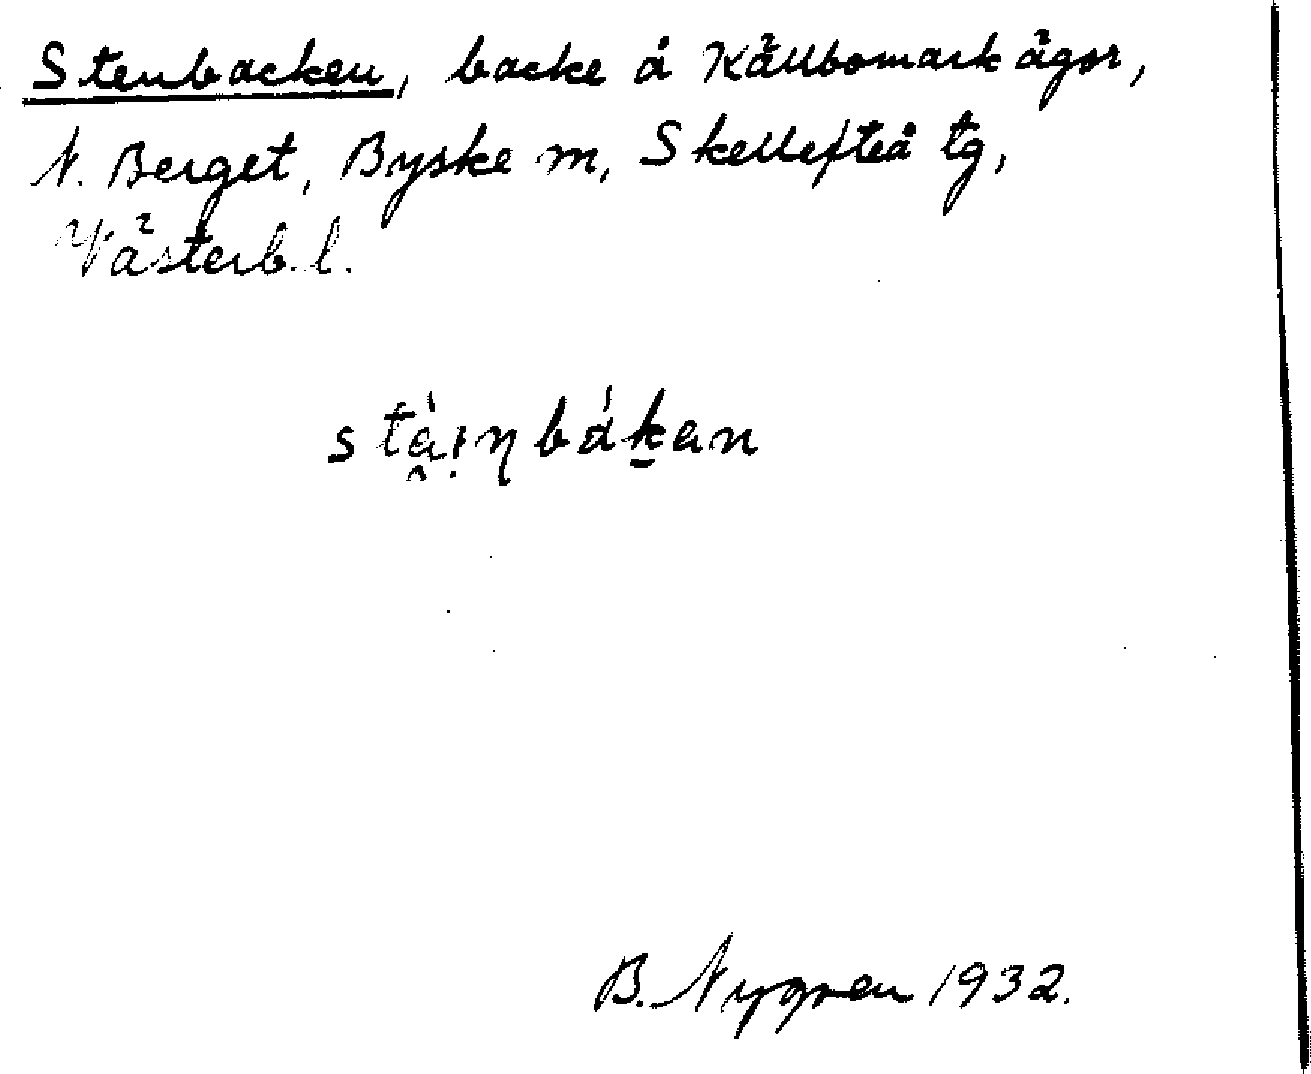 Stenbacken, backe å Källbomark ägor,
N. Berget, Byske m, Skellefteå tg,
Västerb. l.
stà̯ịŋbák̠an
B. Nygren 1932.